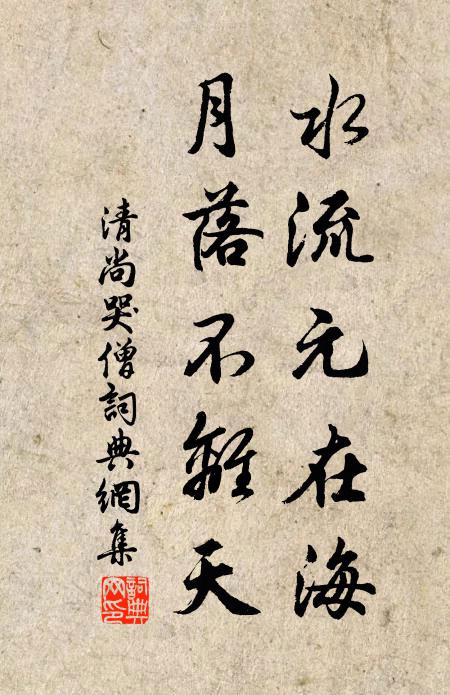 水流元在海
月落不離天
清尚哭僧詞典網集
詞典網印